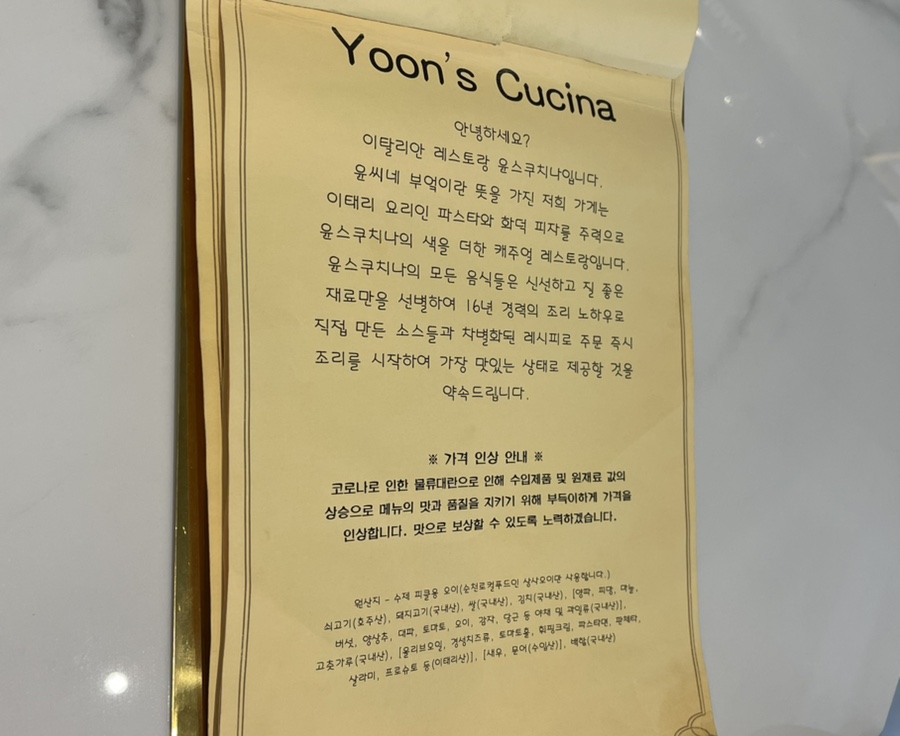 Yoon's Cucina
안녕하세요?
이탈리안 레스토랑 윤스쿠치나입니다.
윤씨네 부엌이란 뜻을 가진 저희 가게는
이태리 요리인 파스타와 화덕 피자를 주력으로
윤스쿠치나의 색을 더한 캐주얼 레스토랑입니다.
윤스쿠치나의 모든 음식들은 신선하고 질 좋은
재료만을 선별하여 16년 경력의 조리 노하우로
직접 만든 소스들과 차별화된 레시피로 주문 즉시
조리를 시작하여 가장 맛있는 상태로 제공할 것을
약속드립니다.
※ 가격 인상 안내 ※
코로나로 인한 물류대란으로 인해 수입제품 및 원재료 값의
상승으로 메뉴의 맛과 품질을 지키기 위해 부득이하게 가격을
인상합니다. 맛으로 보상할 수 있도록 노력하겠습니다.
원산지 - 수제 피클용 오이(순천로컬푸드인 상사오이만 사용합니다.)
쇠고기(호주산), 돼지고기(국내산), 쌀(국내산), 김치(국내산), [양파, 피망, 마늘,
버섯, 양상추, 대파, 토마토, 오이, 감자, 당근 등 야채 및 과일류(국내산)],
고춧가루(국내산), [올리브오일, 경성치즈류, 토마토홀, 휘핑크림, 파스타면, 판체타,
살라미, 프로슈토 등(이태리산)], [새우, 문어(수입산)], 백합(국내산)